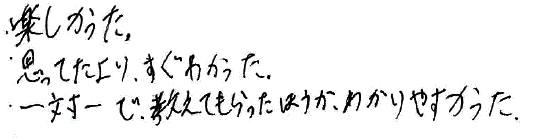 ・楽しかった。
・思ってたより、すぐわかった。
・一対一で、教えてもらったほうが、わかりやすかった。